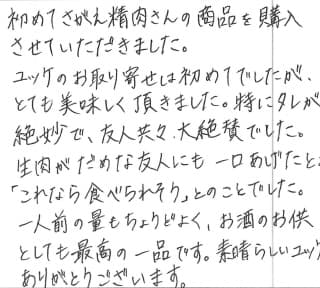 初めてさがえ精肉さんの商品を購入
させていただきました。
ユッケのお取り寄せは初めてでしたが、
とても美味しく頂きました。特にタレが
絶妙で、友人共々、大絶賛でした。
生肉がだめな友人にも一口あげたとこ
「これなら食べられそう」とのことでした。
一人前の量もちょうどよく、お酒のお供
としても最高の一品です。素晴らしいユッケ
ありがとうございます。